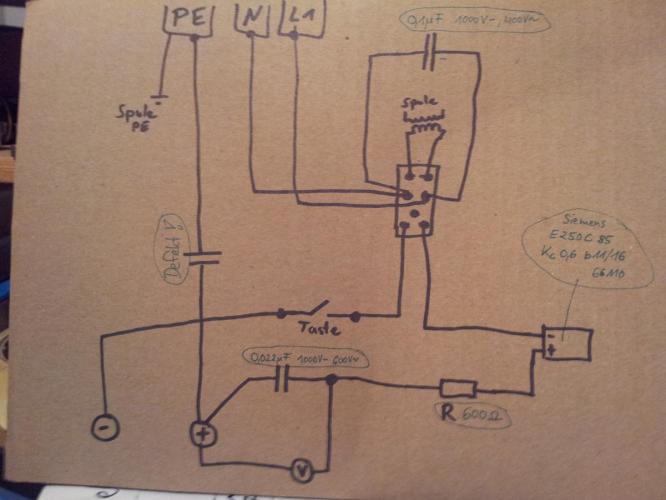 PE N L1
0,1µF 1000V-, 400V~
Spule
PE
Spule
Siemens
E250C 85
Kc 0,6 b11/16
6610
Defekt
Taste
-
+
0,022µF 1000V- 600V~
R 600Ω
-
+
V